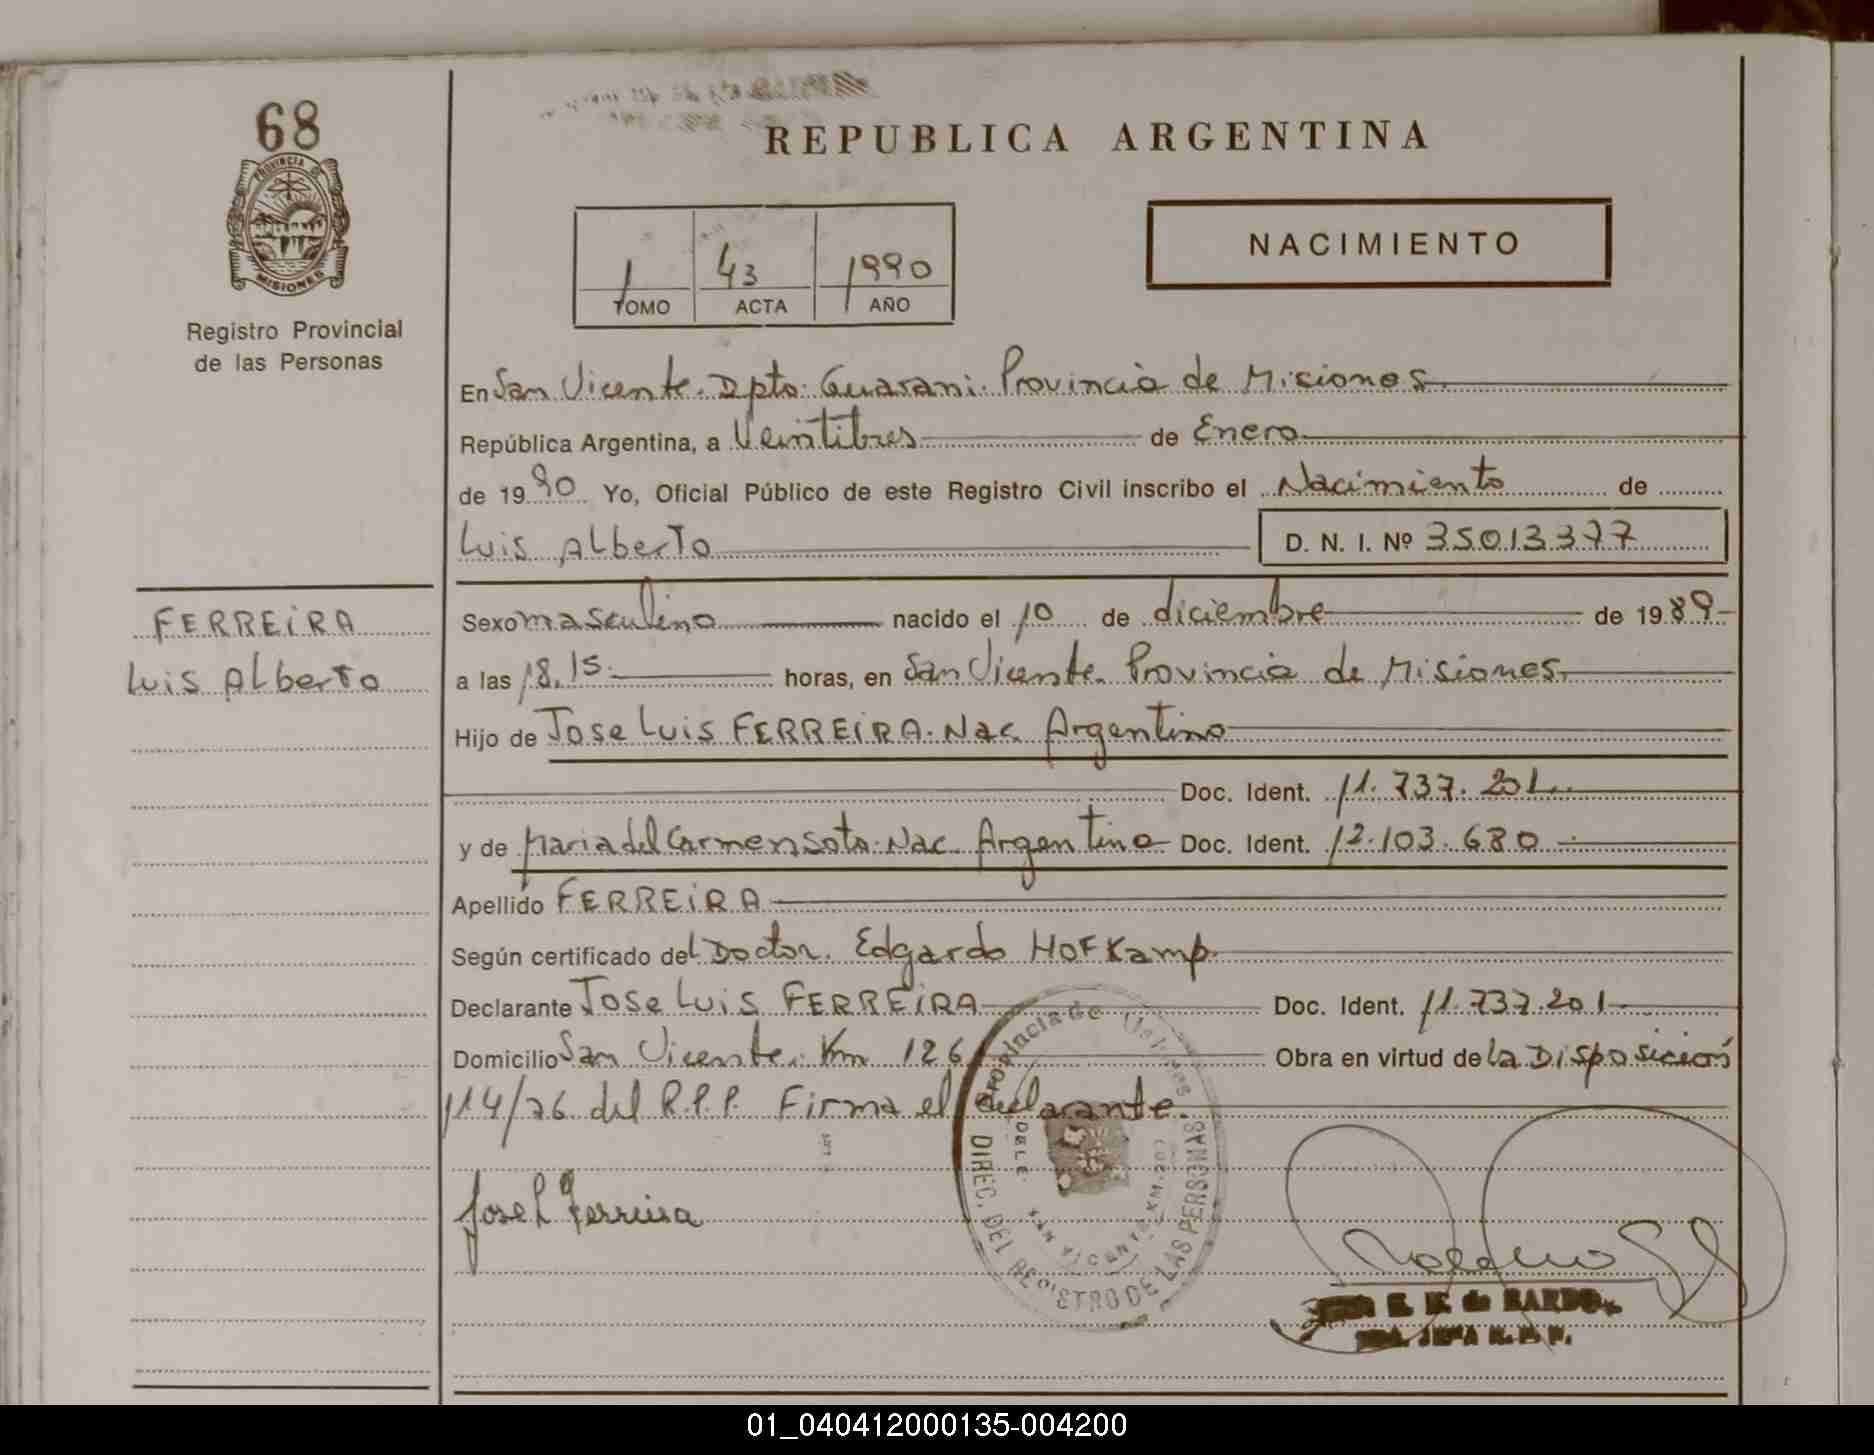 68
PROVINCIA DE
MISIONES
Registro Provincial
de las Personas
REPUBLICA ARGENTINA
1 43 1990
TOMO ACTA AÑO
NACIMIENTO
En San Vicente. Dpto. Guarani. Provincia de Misiones
República Argentina, a Veintitres de Enero
de 1990 Yo, Oficial Público de este Registro Civil inscribo el Nacimiento de
Luis Alberto D. N. I. Nº 35013377
FERREIRA
Luis Alberto
Sexo masculino nacido el 10 de diciembre de 1989
a las 18.15 horas, en San Vicente. Provincia de Misiones.
Hijo de Jose Luis FERREIRA. Nac. Argentino
Doc. Ident. 11.737.201
y de Maria del Carmen Soto. Nac. Argentina Doc. Ident. 12.103.680
Apellido FERREIRA
Según certificado del Doctor. Edgardo HOFKamp
Declarante Jose Luis FERREIRA Doc. Ident. 11.737.201
Domicilio San Vicente. Km 126 Obra en virtud de la Disposición
114/76 del R.P.P. Firma el declarante.
Jose L Ferreira
Provincia de Misiones
DIREC. DEL REGISTRO DE LAS PERSONAS
SAN VICENTE KM.
de BARDO
01_040412000135-004200